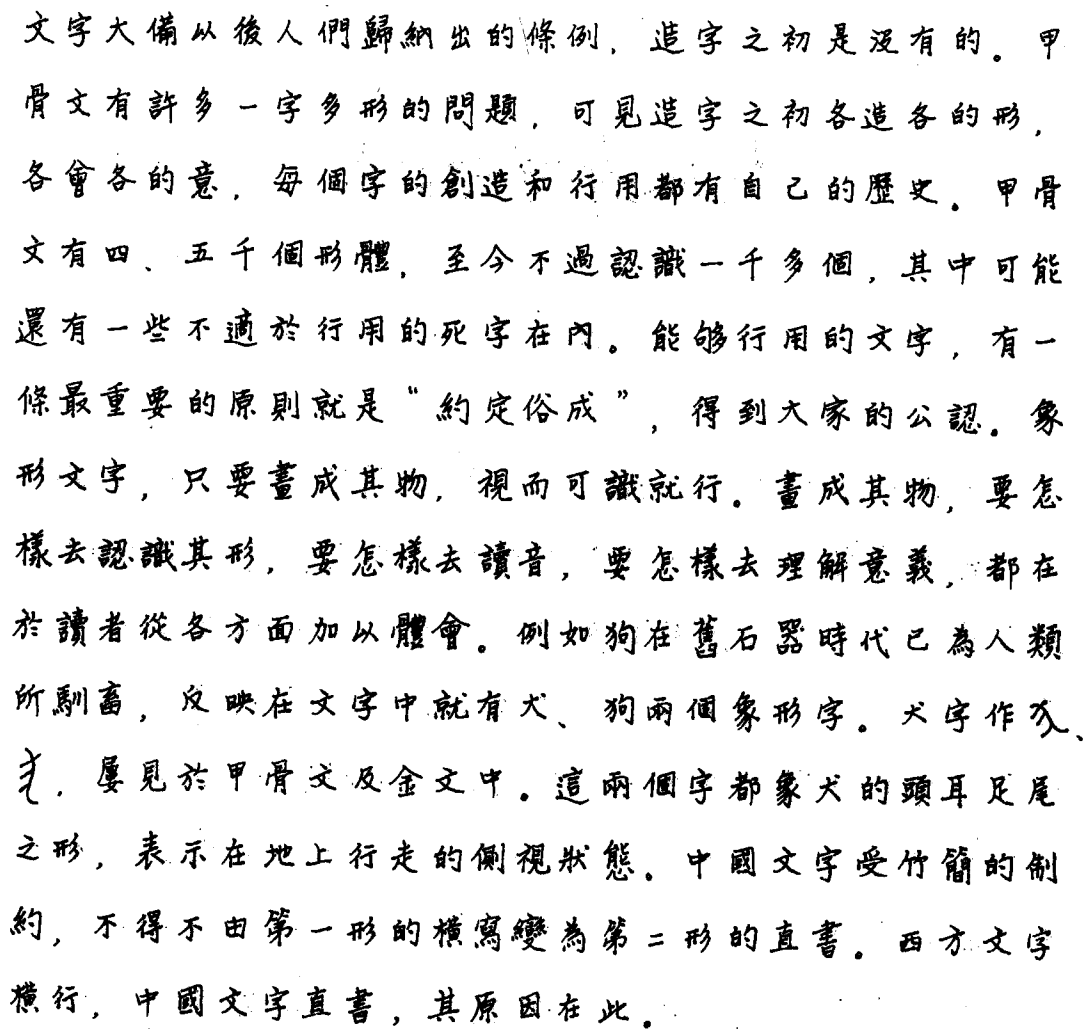 文字大備以後人們歸納出的條例，造字之初是沒有的。甲
骨文有許多一字多形的問題，可見造字之初各造各的形，
各會各的意，每個字的創造和行用都有自己的歷史。甲骨
文有四、五千個形體，至今不過認識一千多個，其中可能
還有一些不適於行用的死字在內。能够行用的文字，有一
條最重要的原則就是“約定俗成”，得到大家的公認。象
形文字，只要畫成其物，視而可識就行。畫成其物，要怎
樣去認識其形，要怎樣去讀音，要怎樣去理解意義，都在
於讀者從各方面加以體會。例如狗在舊石器時代已為人類
所馴畜，反映在文字中就有犬、狗兩個象形字。犬字作、
，屢見於甲骨文及金文中。這兩個字都象犬的頭耳足尾
之形，表示在地上行走的側視狀態。中國文字受竹簡的制
約，不得不由第一形的橫寫變為第二形的直書。西方文字
橫行，中國文字直書，其原因在此。